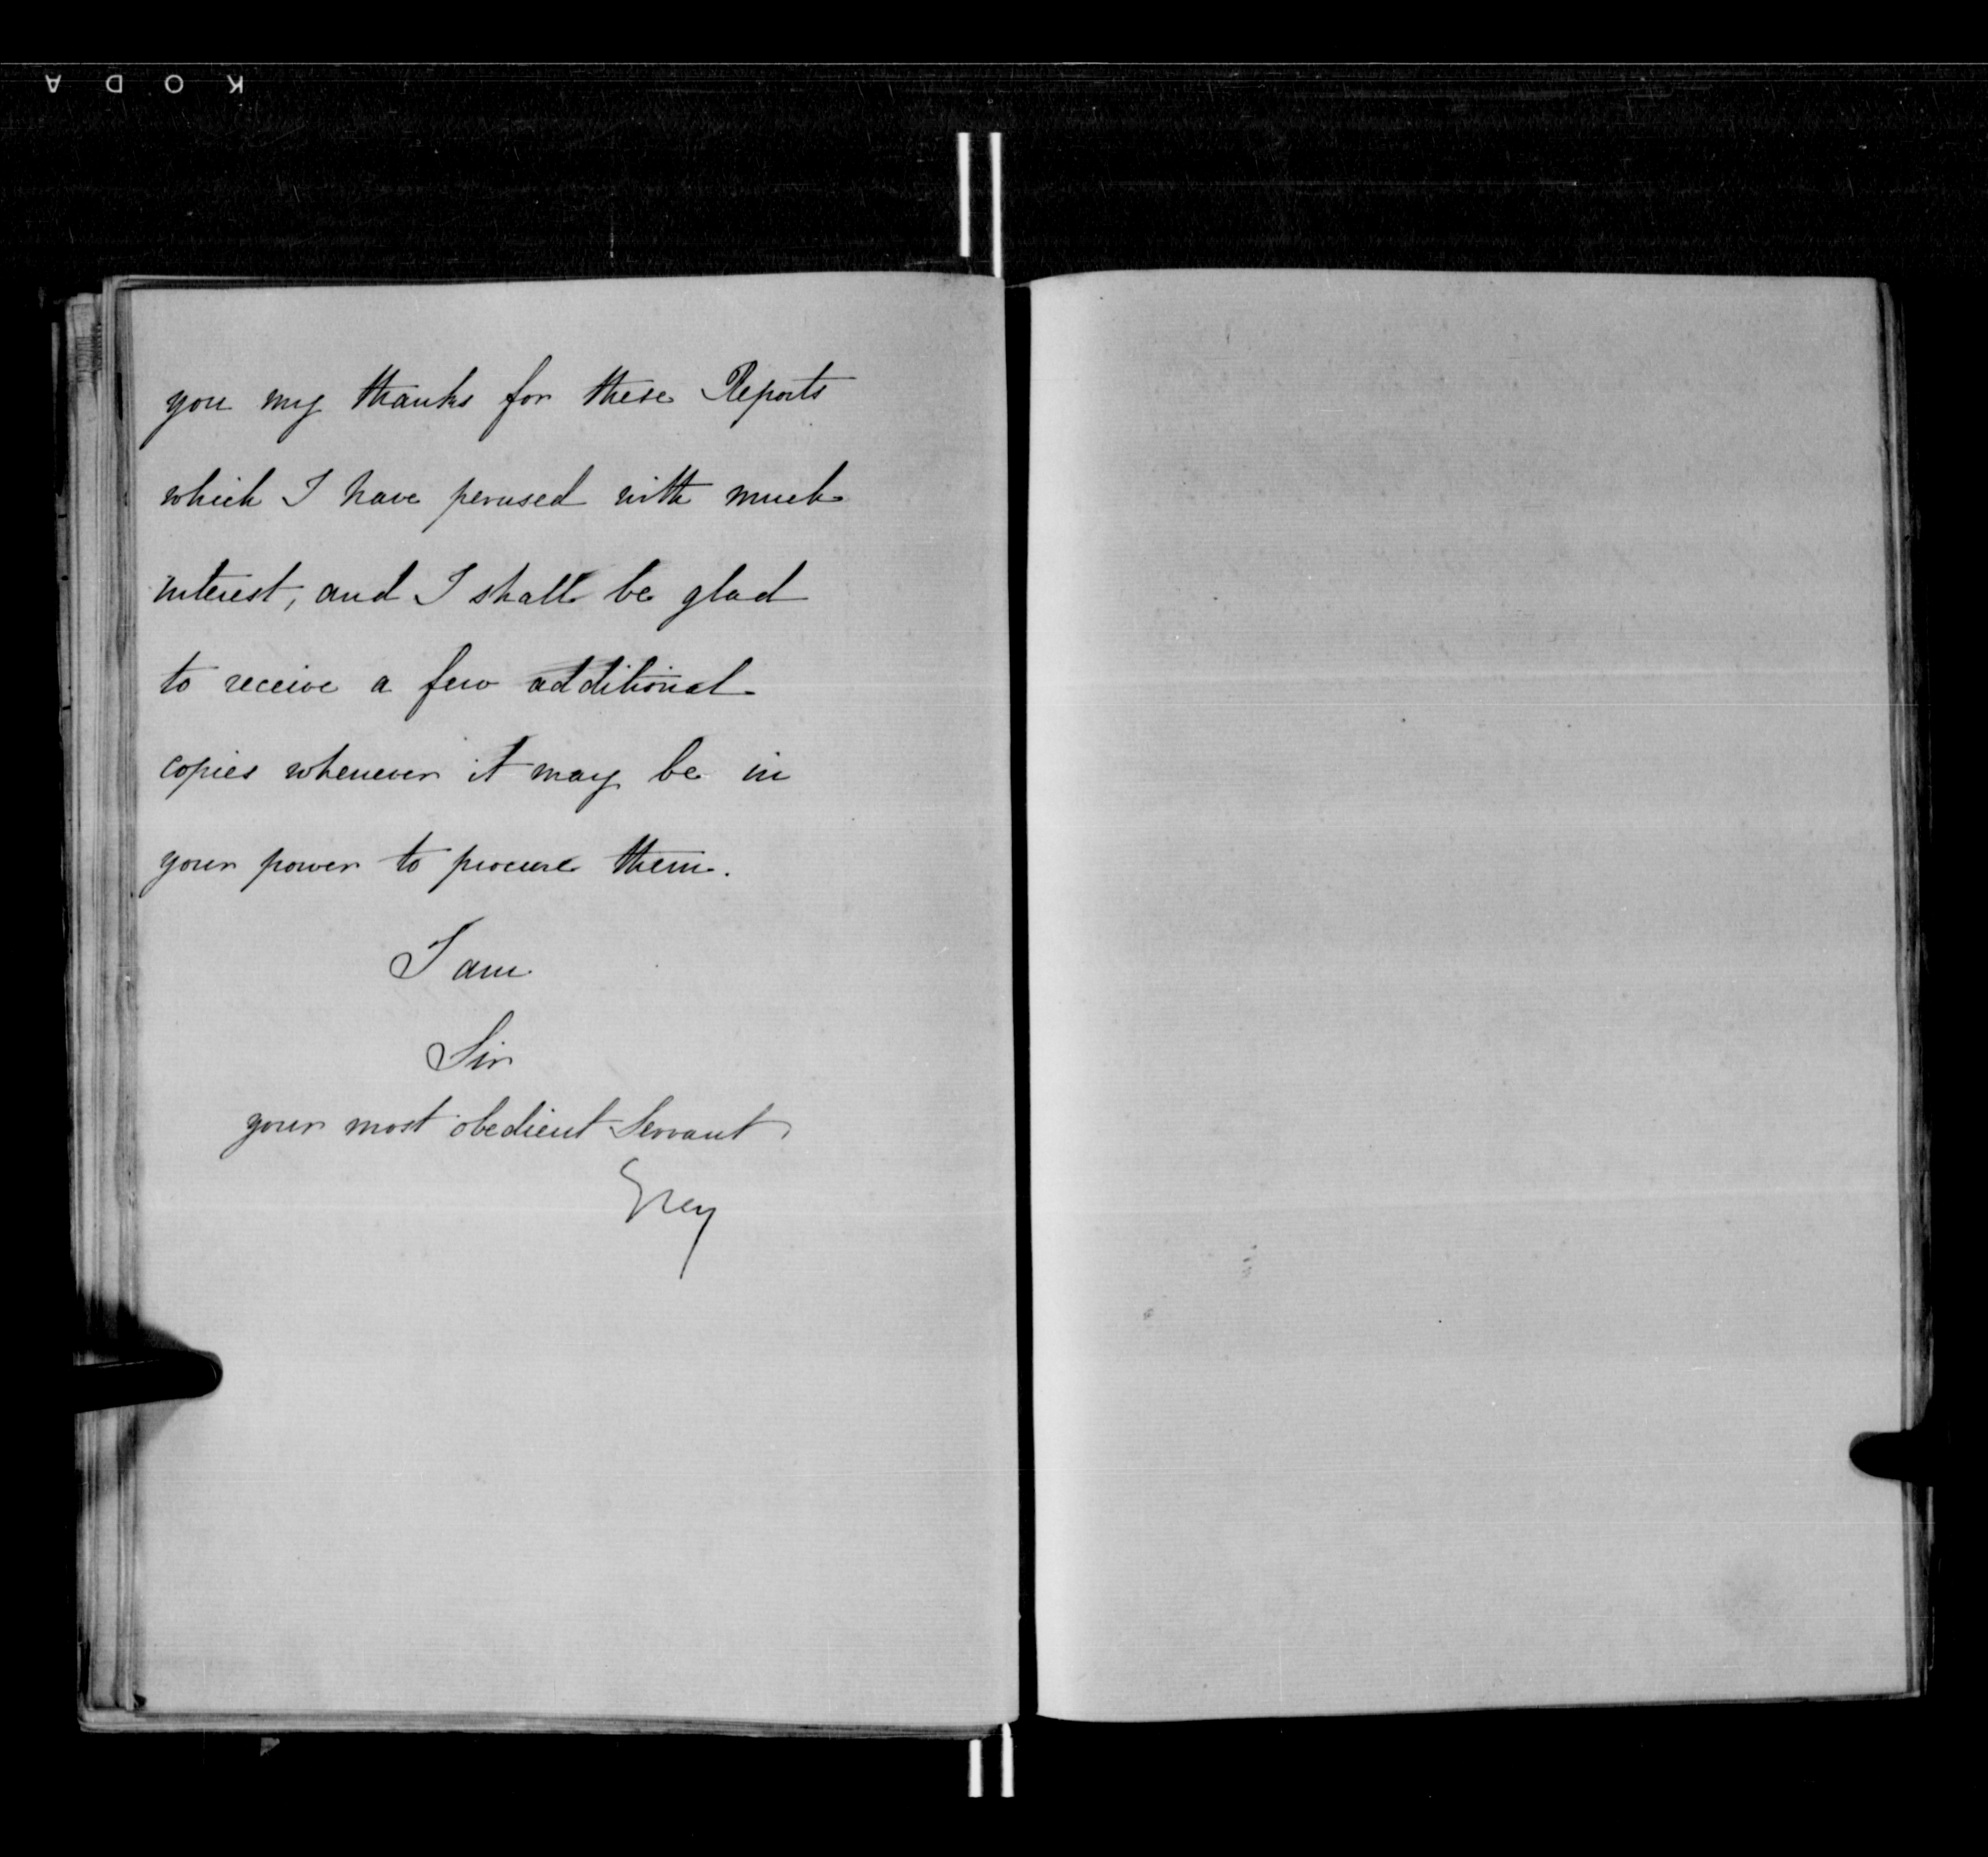 K O D A
you my thanks for these Reports
which I have perused with much
interest, and I shall be glad
to receive a few additional
copies whenever it may be in
your power to procure them.
I am
Sir
your most obedient Servant
Grey